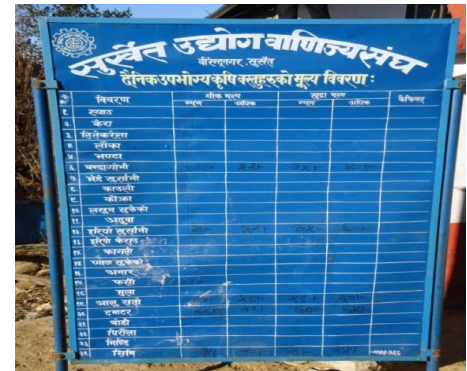 सुर्खेत उद्योग वाणिज्य संघ
वीरेन्द्रनगर, सुर्खेत
दैनिक उपभोग्य कृषि वस्तुहरुको मूल्य विवरण :
विवरण थोक मूल्य खुद्रा मूल्य कैफियत्
न्यून अधिक न्यून अधिक
१. स्याउ
२. केरा
३. तितेकरेला
४. लौका
५. भण्टा
६. बन्दागोभी
७. भेडे खुर्सानी
८. काउली
९. काँक्रा
१०. लसुन सुकेको
११. अदुवा
१२. हरियो खुर्सानी
१३. हरियो केराउ
१४. कागती
१५. प्याज सुकेको
१६. अनार
१७. फर्सी
१८. मूला
१९. आलु रातो
२०. टमाटर
२१. बोडी
२२. घिरौला
२३. भिण्डि
२४. सिमि